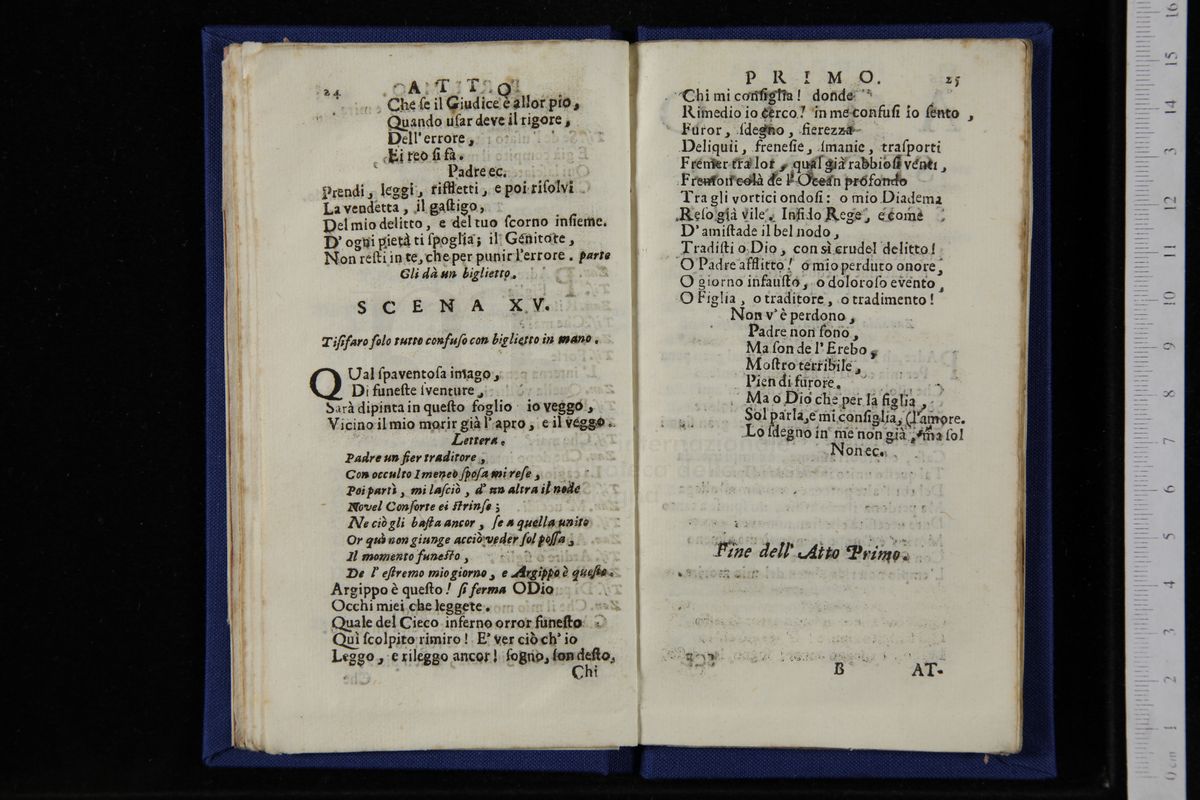 24 ATTO
Che ſe il Giudice è allor pio,
Quando uſar deve il rigore,
Dell'errore,
Ei reo ſi fà.
Padre ec.
Prendi, leggi, rifletti, e poi riſolvi
La vendetta, il gaſtigo,
Del mio delitto, e del tuo ſcorno inſieme.
D'ogni pietà ti ſpoglia; il Genitore,
Non reſti in te, che per punir l'errore. parte
Gli dà un biglietto.
SCENA XV.
Tiſifaro ſolo tutto confuſo con biglietto in mano.
QUal ſpaventoſa imago,
Di funeſte ſventure,
Sarà dipinta in queſto foglio io veggo,
Vicino il mio morir già l'apro, e il veggo.
Lettera.
Padre un fier traditore,
Con occulto Imeneo ſpoſa mi reſe,
Poi partì, mi laſciò, d'un altra il nodo
Novel Conſorte ei ſtrinſe;
Ne ciò gli baſta ancor, ſe a quella unito
Or quà non giunge acciò veder ſol poſſa,
Il momento funeſto,
De l'eſtremo mio giorno, e Argippo è queſto.
Argippo è queſto! ſi ferma O Dio
Occhi miei che leggete.
Quale del Cieco inferno orror funeſto
Quì ſcolpito rimiro! E' ver ciò ch'io
Leggo, e rileggo ancor! ſogno, ſon deſto,
Chi
PRIMO. 25
Chi mi conſiglia! donde
Rimedio io cerco? in me confuſi io ſento,
Furor, ſdegno, fierezza
Deliquii, freneſie, ſmanie, traſporti
Fremer tra lor, qual già rabbioſi venti,
Fremon colà de l'Ocean profondo
Tra gli vortici ondoſi: o mio Diadema
Reſo già vile. Infido Rege, e come
D'amiſtade il bel nodo,
Tradiſti o Dio, con sì crudel delitto!
O Padre afflitto! o mio perduto onore,
O giorno infauſto, o doloroſo evento,
O Figlia, o traditore, o tradimento!
Non v'è perdono,
Padre non ſono,
Ma ſon de l'Erebo,
Moſtro terribile,
Pien di furore.
Ma o Dio che per la figlia,
Sol parla, e mi conſiglia, (l'amore.
Lo ſdegno in me non già, ma ſol
Non ec.
Fine dell'Atto Primo.
B AT-